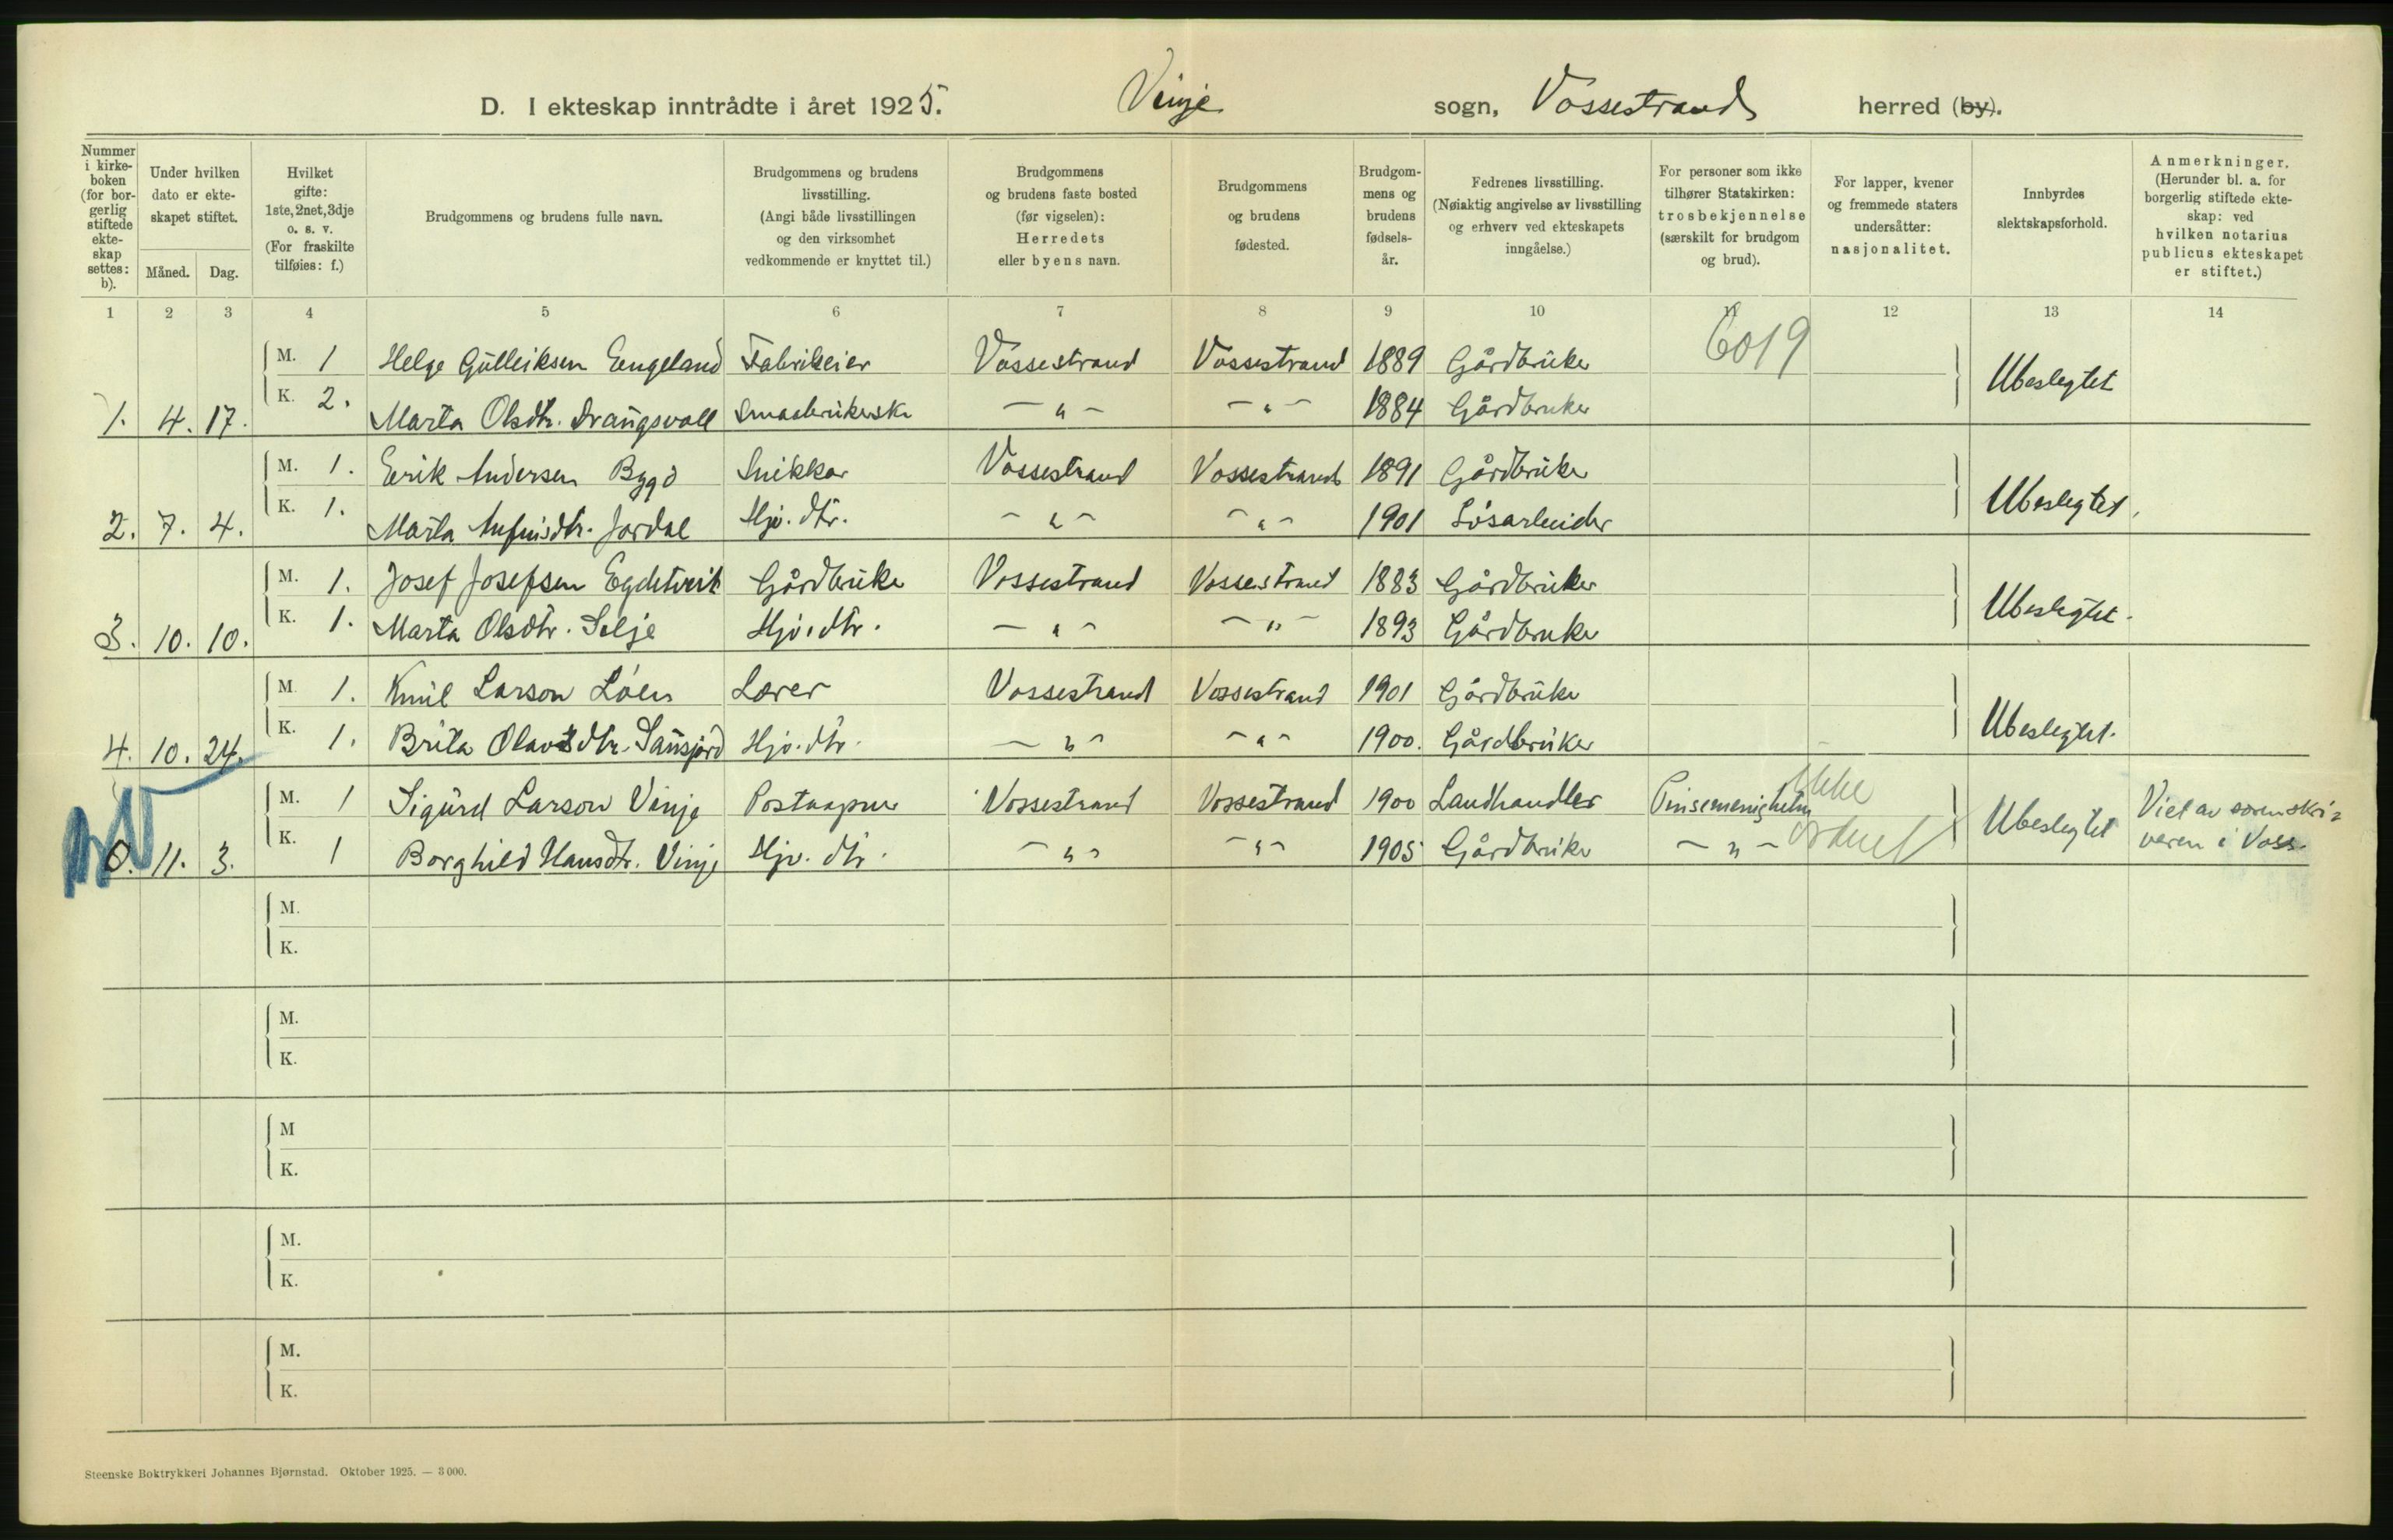 D. I ekteskap inntrådte i året 1925. Vinje sogn, Vossestrand herred (by).
Nummer i kirkeboken (for borgerlig stiftede ekteskap settes: b).
Under hvilken dato er ekteskapet stiftet.
Måned. Dag.
Hvilket gifte: 1ste, 2net, 3dje o. s. v. (For fraskilte tilføies: f.)
Brudgommens og brudens fulle navn.
Brudgommens og brudens livsstilling. (Angi både livsstillingen og den virksomhet vedkommende er knyttet til.)
Brudgommens og brudens faste bosted (før vigselen): Herredets eller byens navn.
Brudgommens og brudens fødested.
Brudgommens og brudens fødselsår.
Fedrenes livsstilling. (Nøiaktig angivelse av livsstilling og erhverv ved ekteskapets inngåelse.)
For personer som ikke tilhører Statskirken: trosbekjennelse (særskilt for brudgom og brud).
For lapper, kvener og fremmede staters undersåtter: nasjonalitet.
Innbyrdes slektskapsforhold.
Anmerkninger. (Herunder bl. a. for borgerlig stiftede ekteskap: ved hvilken notarius publicus ekteskapet er stiftet.)
1 2 3 4 5 6 7 8 9 10 11 12 13 14
6019
M. 1 Helge Gulleiksen Engeland Fabrikeier Vossestrand Vossestrand 1889 Gårdbruker Ubeslegtet
1. 4. 17. K. 2. Marta Olsdtr. Drangsvoll Smaabrukerske — " — — " — 1884 Gårdbruker
M. 1. Eirik Andersen Bygd Snikkar Vossestrand Vossestrand 1891 Gårdbruker Ubeslegtet.
2. 7. 4. K. 1. Marta Jordal Hjv. dtr. — " — — " — 1901 Løsarbeider
M. 1. Josef Josefsen Egdetveit Gårdbruker Vossestrand Vossestrand 1883 Gårdbruker Ubeslegtet.
3. 10. 10. K. 1. Marta Olsdtr. Selje Hjv. dtr. — " — — " — 1893 Gårdbruker
M. 1. Larson Løen Lærer Vossestrand Vossestrand 1901 Gårdbruker Ubeslegtet.
4. 10. 24. K. 1. Brita Olavsdtr. Hjv. dtr. — " — — " — 1900. Gårdbruker
M. 1 Sigurd Larson Vinje Postaapner Vossestrand Vossestrand 1900 Landhandler Pinsemenigheten Ikke Ubeslegtet Viet av sorenskri-
0. 11. 3. K. 1 Borghild Hansdtr. Vinje Hjv. dtr. — " — — " — 1905 Gårdbruker — " — ordnet veren i Voss.
M.
K.
M.
K.
M
K.
M.
K.
M.
K.
Steenske Boktrykkeri Johannes Bjørnstad. Oktober 1925. — 3 000.